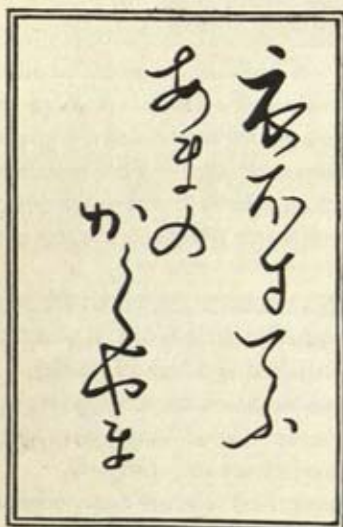 衣ほすてふ
あまの
かくやま